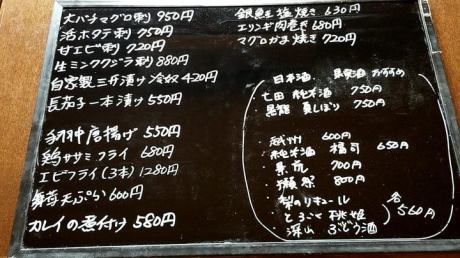 大バチマグロ刺 950円
活ホタテ刺 750円
甘エビ刺 720円
生ミンククジラ刺 880円
自家製三升漬け冷奴 420円
長茄子一本漬け 550円
手羽中唐揚げ 550円
鶏ササミフライ 680円
エビフライ(3本) 1280円
舞茸天ぷら 600円
カレイの煮付け 580円
銀鮭塩焼き 630円
エリンギ肉巻き 680円
マグロかま焼き 720円
日本酒 果実酒 おすすめ
七田 純米酒 750円
黒龍 夏しぼり 750円
・越州 600円
・純米酒 福司 650円
・来荒 700円
・獺祭 800円
・梨のリキュール
・とろこく桃姫 各560円
・深山 ぶどう酒